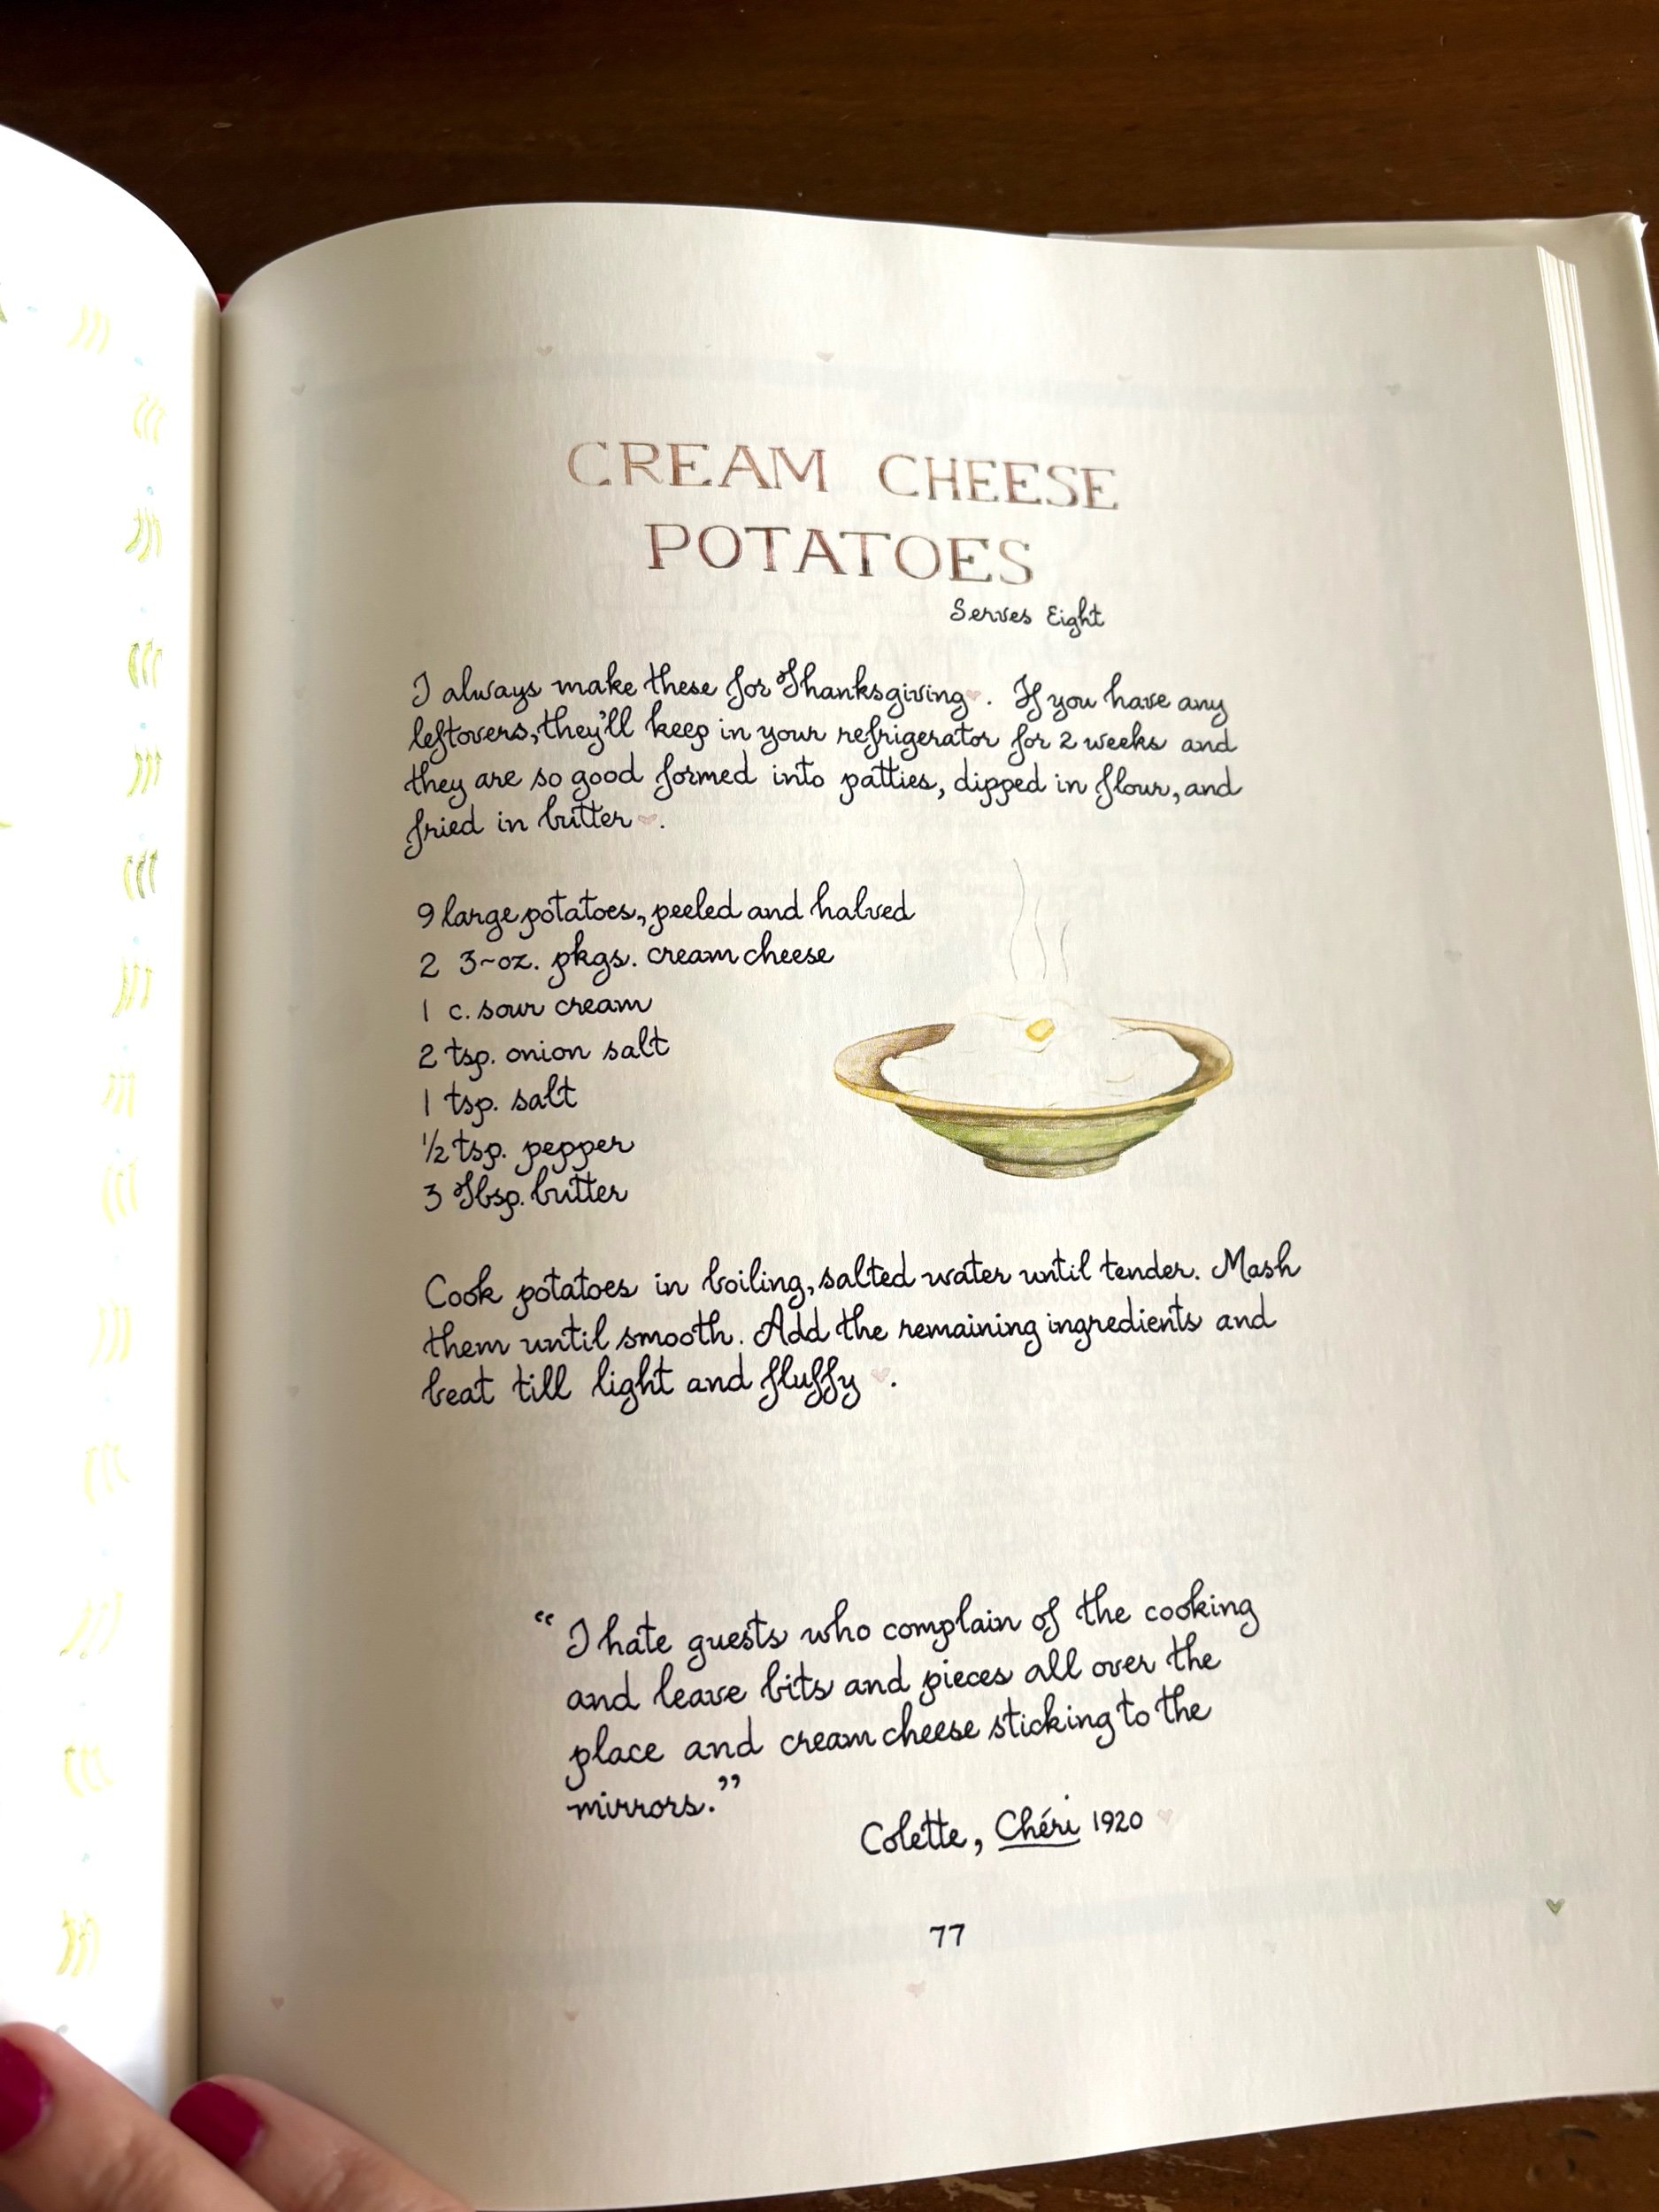 CREAM CHEESE
POTATOES
Serves Eight
I always make these for Thanksgiving. If you have any
leftovers, they'll keep in your refrigerator for 2 weeks and
they are so good formed into patties, dipped in flour, and
fried in butter.
9 large potatoes, peeled and halved
2 3~oz. pkgs. cream cheese
1 c. sour cream
2 tsp. onion salt
1 tsp. salt
1/2 tsp. pepper
3 Tbsp. butter
Cook potatoes in boiling, salted water until tender. Mash
them until smooth. Add the remaining ingredients and
beat till light and fluffy.
"I hate guests who complain of the cooking
and leave bits and pieces all over the
place and cream cheese sticking to the
mirrors."
Colette, Chéri 1920
77